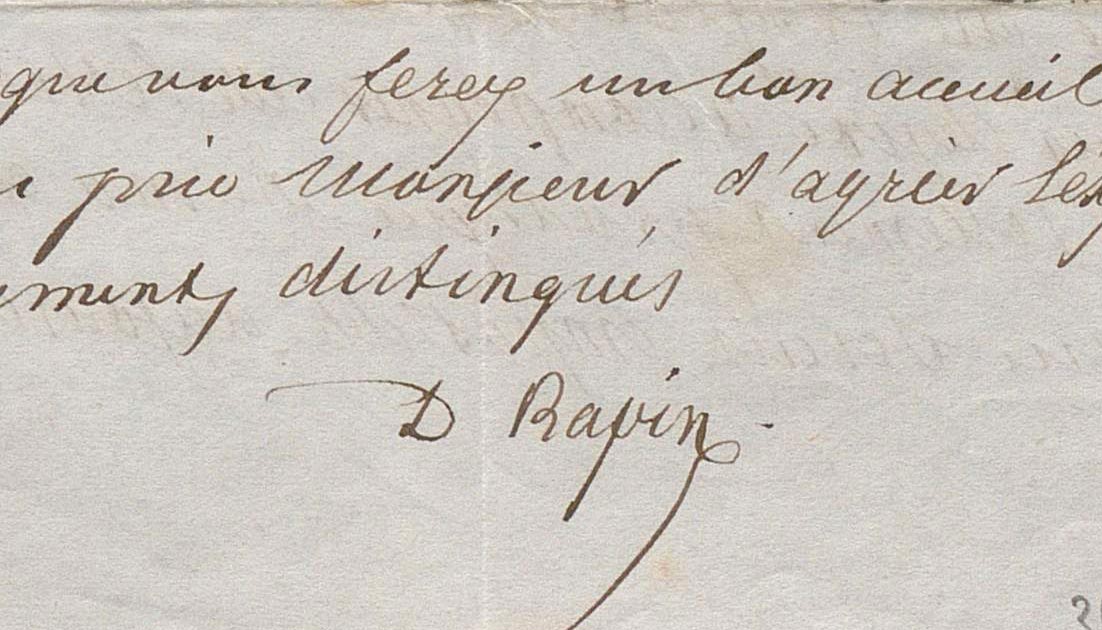 que vous ferez un bon accueil
prie Monsieur d'agréer l'ex
ements distingués
D Rapin.